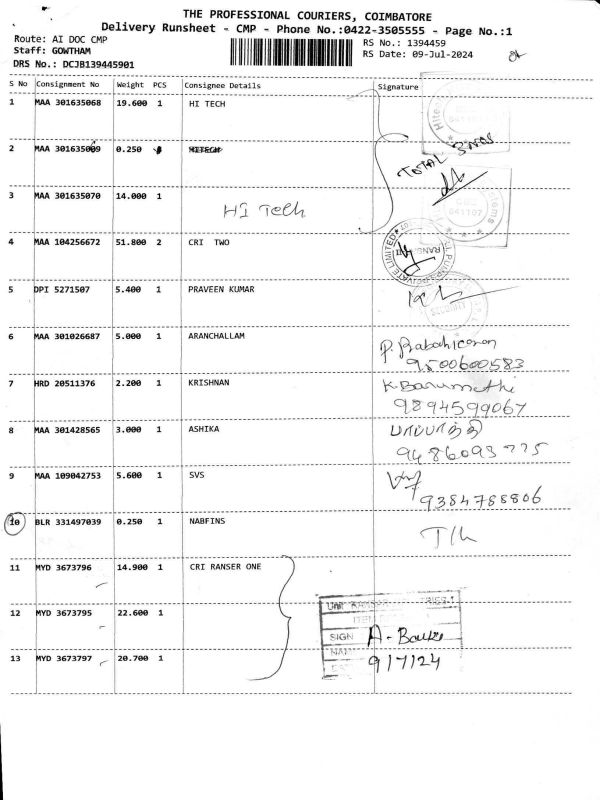 THE PROFESSIONAL COURIERS, COIMBATORE
Delivery Runsheet - CMP - Phone No.:0422-3505555 - Page No.:1
Route: AI DOC CMP
Staff: GOWTHAM
DRS No.: DCJB139445901
RS No.: 1394459
RS Date: 09-Jul-2024
S No Consignment No Weight PCS Consignee Details Signature
1 MAA 301635068 19.600 1 HI TECH
2 MAA 301635069 0.250 HITECH
TOTAL 3NOS
3 MAA 301635070 14.000 1 HI Tech
641107
4 MAA 104256672 51.800 2 CRI TWO
PRIVATE LIMITED
5 DPI 5271507 5.400 1 PRAVEEN KUMAR
SECURITY
6 MAA 301026687 5.000 1 ARANCHALLAM
9500600583
7 HRD 20511376 2.200 1 KRISHNAN
9894599067
8 MAA 301428565 3.000 1 ASHIKA பாப்பாத்தி
9486093775
9 MAA 109042753 5.600 1 SVS
9384788806
10 BLR 331497039 0.250 1 NABFINS
11 MYD 3673796 14.900 1 CRI RANSER ONE
12 MYD 3673795 22.600 1
SIGN
13 MYD 3673797 20.700 1
9/7/24